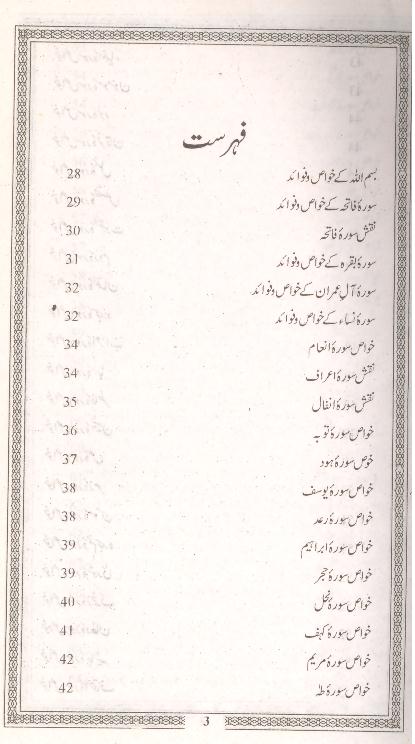 فہرست
بسم اللہ کے خواص و فوائد 28
سورۂ فاتحہ کے خواص و فوائد 29
نقش سورۂ فاتحہ 30
سورۂ بقرہ کے خواص و فوائد 31
سورۂ آل عمران کے خواص و فوائد 32
سورۂ نساء کے خواص و فوائد 32
خواص سورۂ انعام 34
نقش سورۂ اعراف 34
نقش سورۂ انفال 35
خواص سورۂ توبہ 36
خوص سورۂ ہود 37
خواص سورۂ یوسف 38
خواص سورۂ رعد 38
خواص سورۂ ابراہیم 39
خواص سورۂ حجر 39
خواص سورۂ نحل 40
خواص سورۂ کہف 41
خواص سورۂ مریم 42
خواص سورۂ طہٰ 42
3